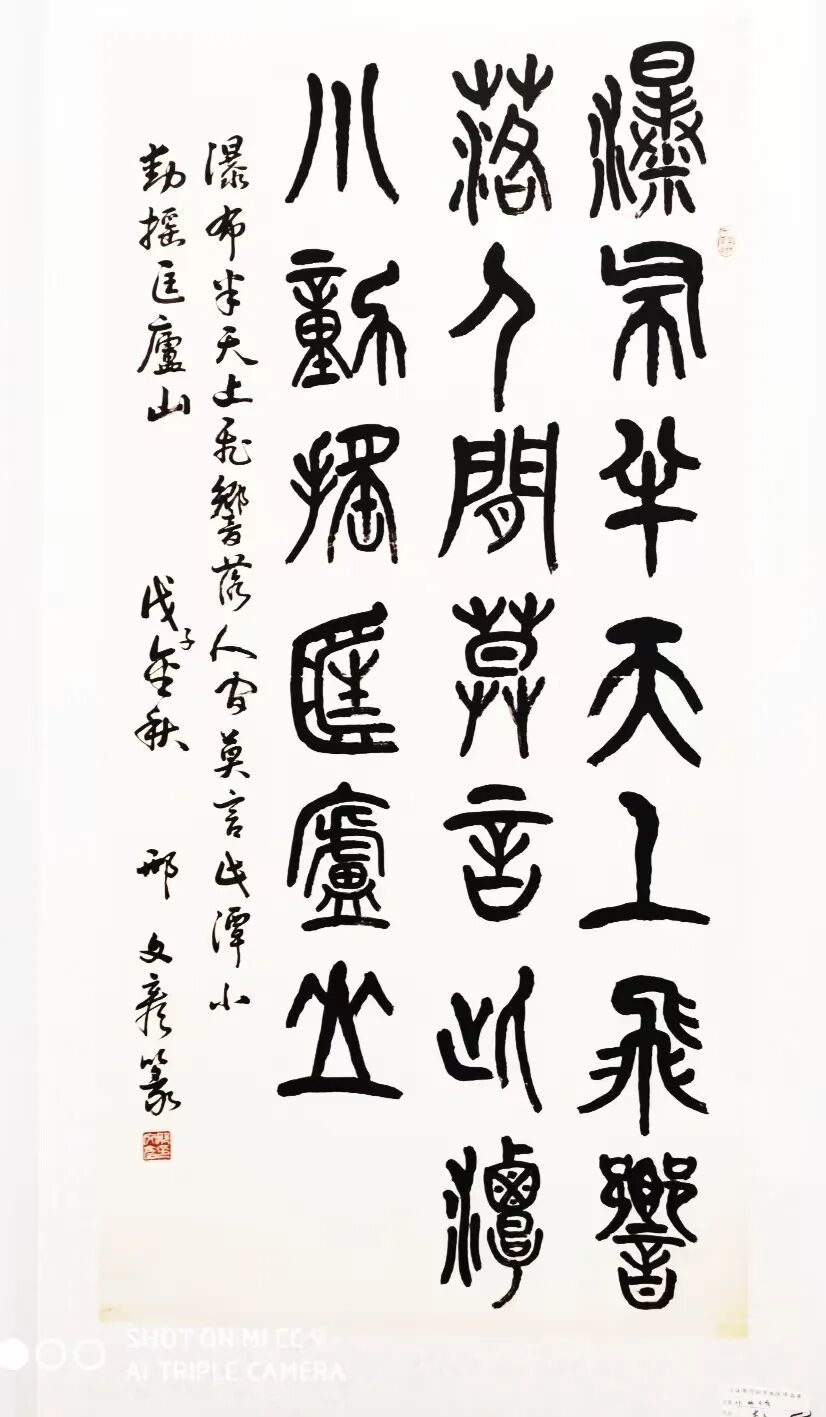 瀑布半天上飛響
落人間莫言此潭
小動搖匡廬山
瀑布半天上飛響落人間莫言此潭小
動搖匡廬山 戊子金秋 邢文彥篆
SHOT ON MI CC 9
AI TRIPLE CAMERA